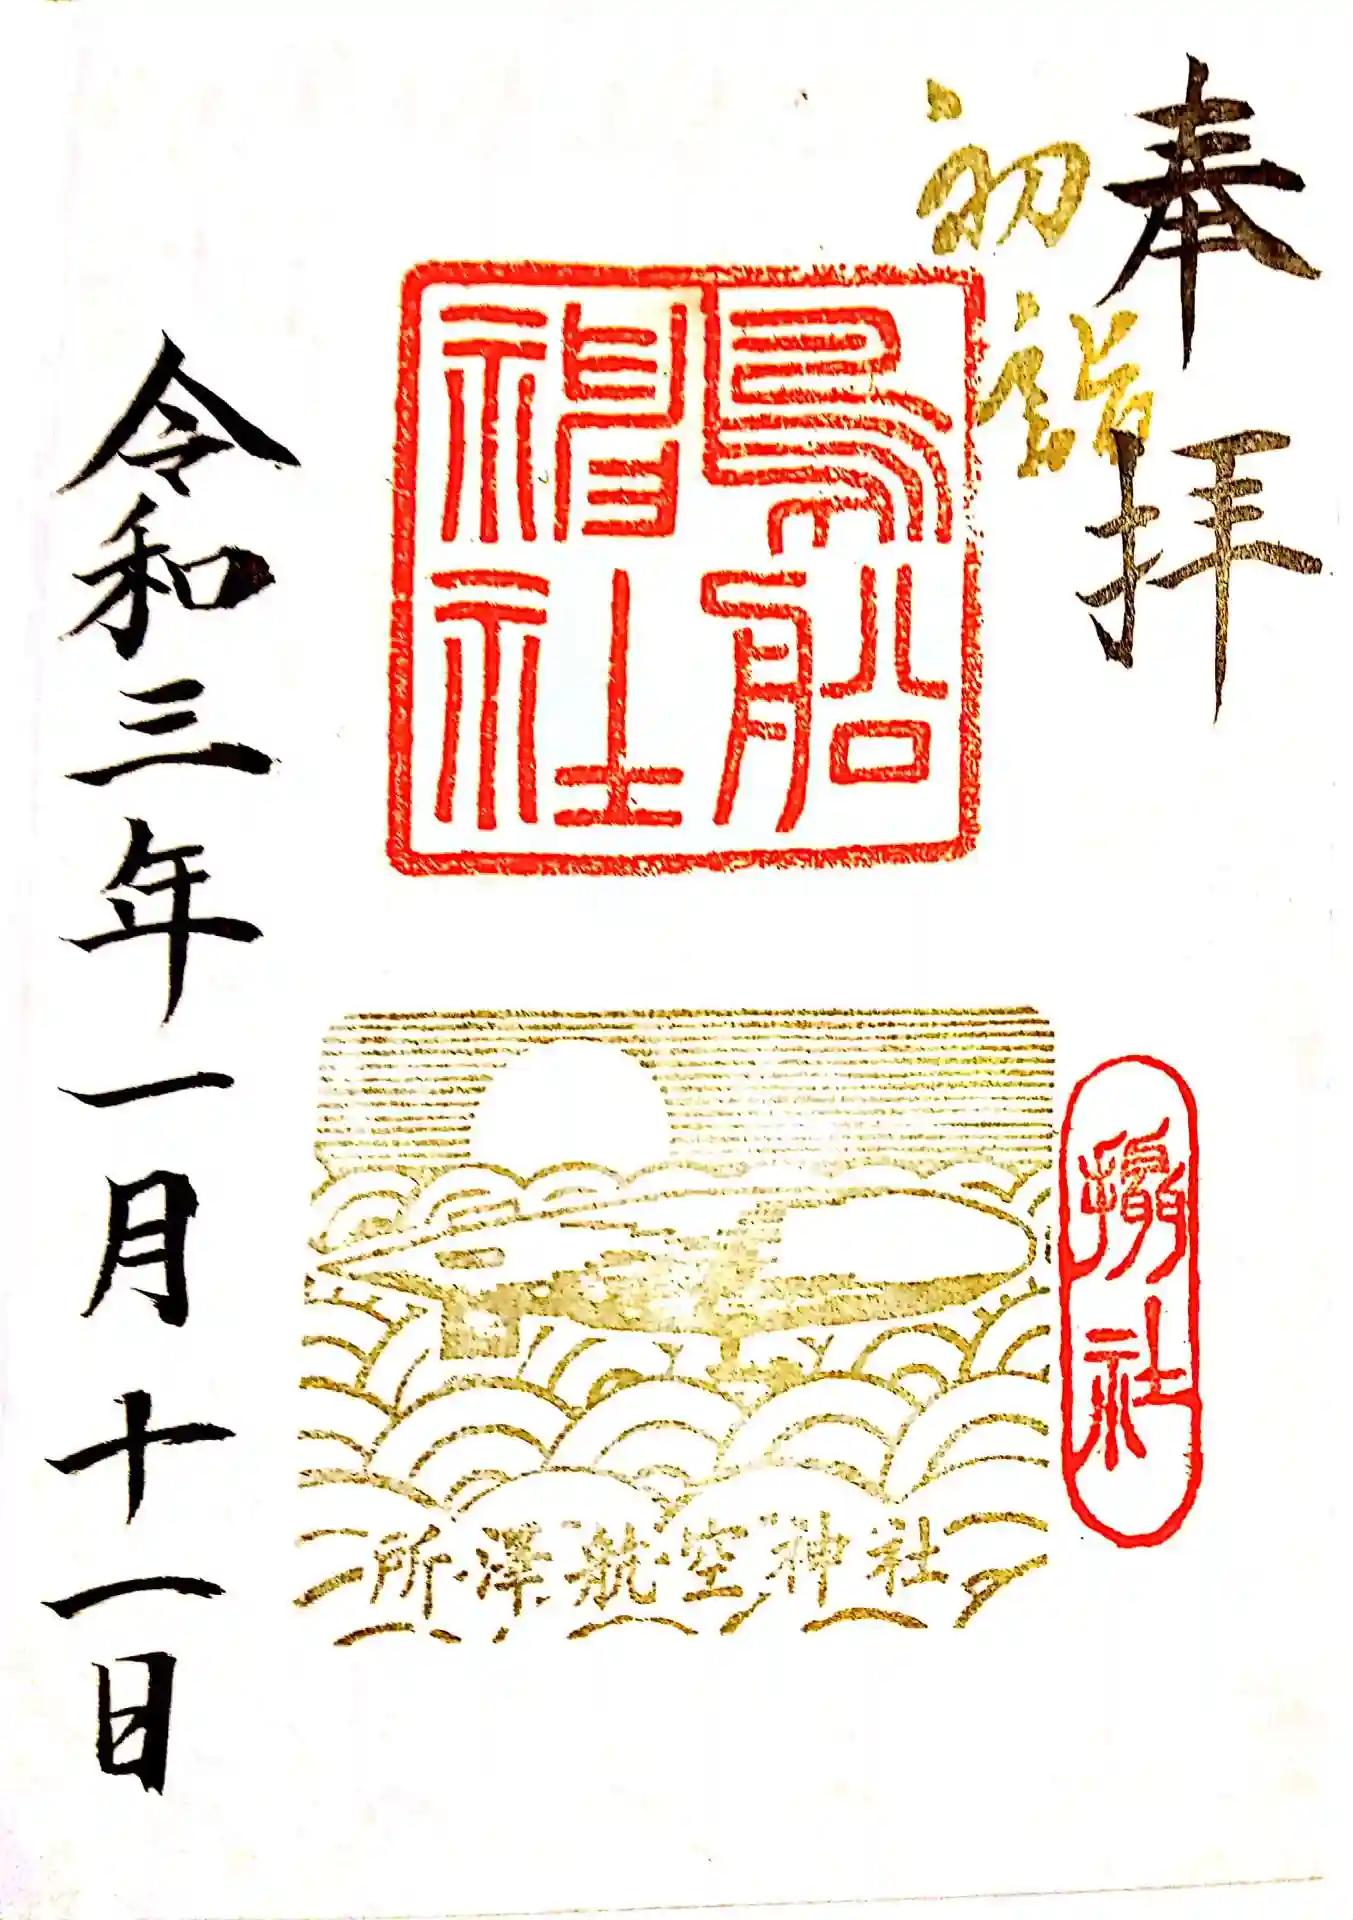 奉拝
初詣
鳥船
神社
攝社
所澤航空神社
令和三年一月十一日